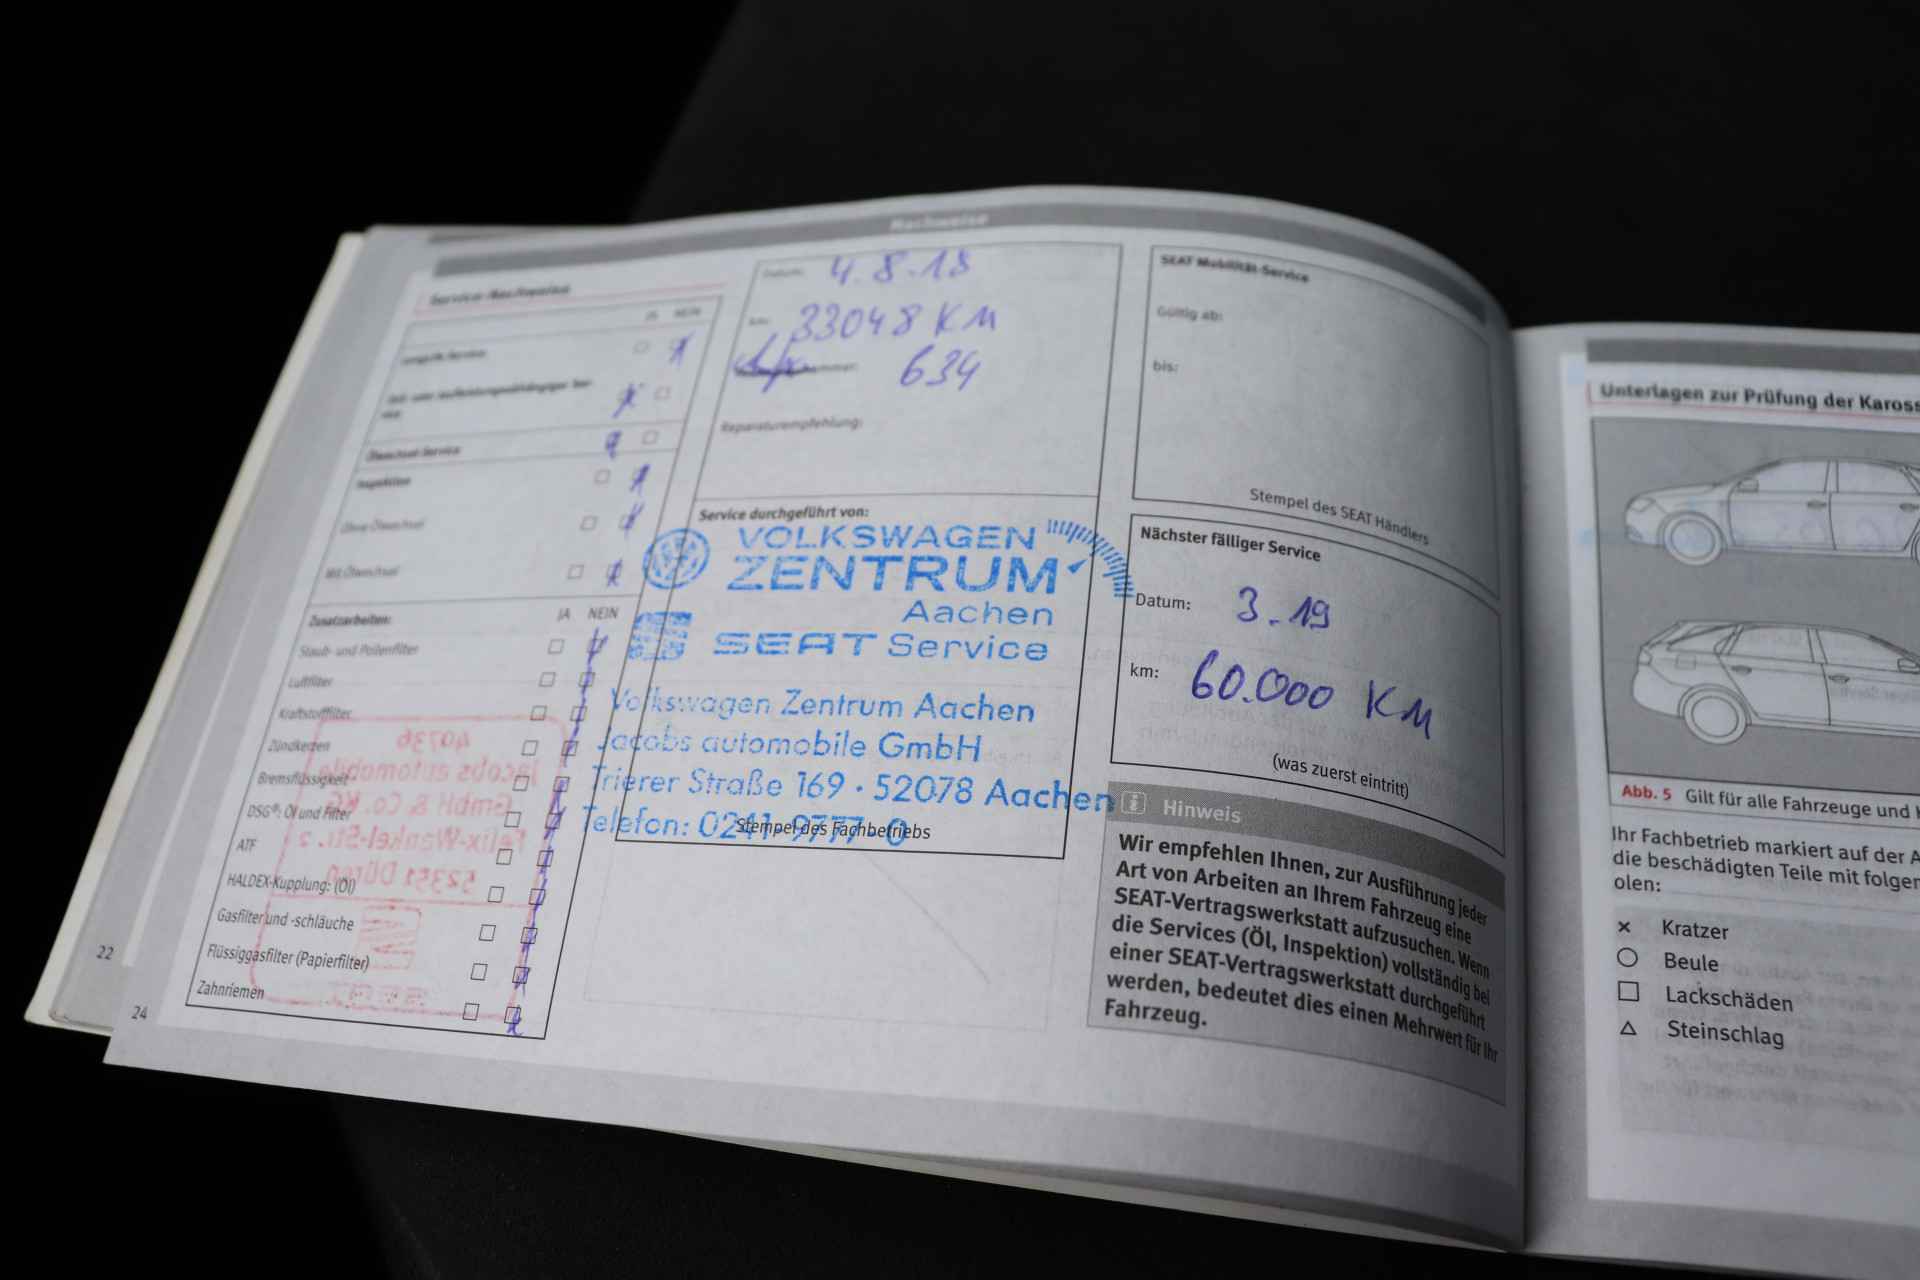 Nachweise
Service-Nachweise
JA NEIN
LongLife-Service
Zeit- oder laufleistungsabhängiger Ser-
vice
Ölwechsel-Service
Inspektion
Ohne Ölwechsel
Mit Ölwechsel
Zusatzarbeiten:
JA NEIN
Staub- und Pollenfilter
Luftfilter
Kraftstofffilter
Zündkerzen
Bremsflüssigkeit
DSG®: Öl und Filter
ATF
HALDEX-Kupplung: (Öl)
Gasfilter und -schläuche
Flüssiggasfilter (Papierfilter)
Zahnriemen
22
24
Datum: 4.8.18
km: 33048 KM
634
Reparaturempfehlung:
Service durchgeführt von:
VOLKSWAGEN
ZENTRUM
Aachen
SEAT Service
Volkswagen Zentrum Aachen
Jacobs automobile GmbH
Trierer Straße 169 · 52078 Aachen
Telefon: 0241-9777-0
Stempel des Fachbetriebs
40736
Jacobs automobile
GmbH & Co. KG
Felix-Wankel-Str. 2
52351 Düren
SEAT Mobilität-Service
Gültig ab:
bis:
Stempel des SEAT Händlers
Nächster fälliger Service
Datum: 3.19
km: 60.000 KM
(was zuerst eintritt)
i Hinweis
Wir empfehlen Ihnen, zur Ausführung jeder
Art von Arbeiten an Ihrem Fahrzeug eine
SEAT-Vertragswerkstatt aufzusuchen. Wenn
die Services (Öl, Inspektion) vollständig bei
einer SEAT-Vertragswerkstatt durchgeführt
werden, bedeutet dies einen Mehrwert für Ihr
Fahrzeug.
Unterlagen zur Prüfung der Kaross
Abb. 5 Gilt für alle Fahrzeuge und
Ihr Fachbetrieb markiert auf der A
die beschädigten Teile mit folgen
olen:
Kratzer
Beule
Lackschäden
Steinschlag